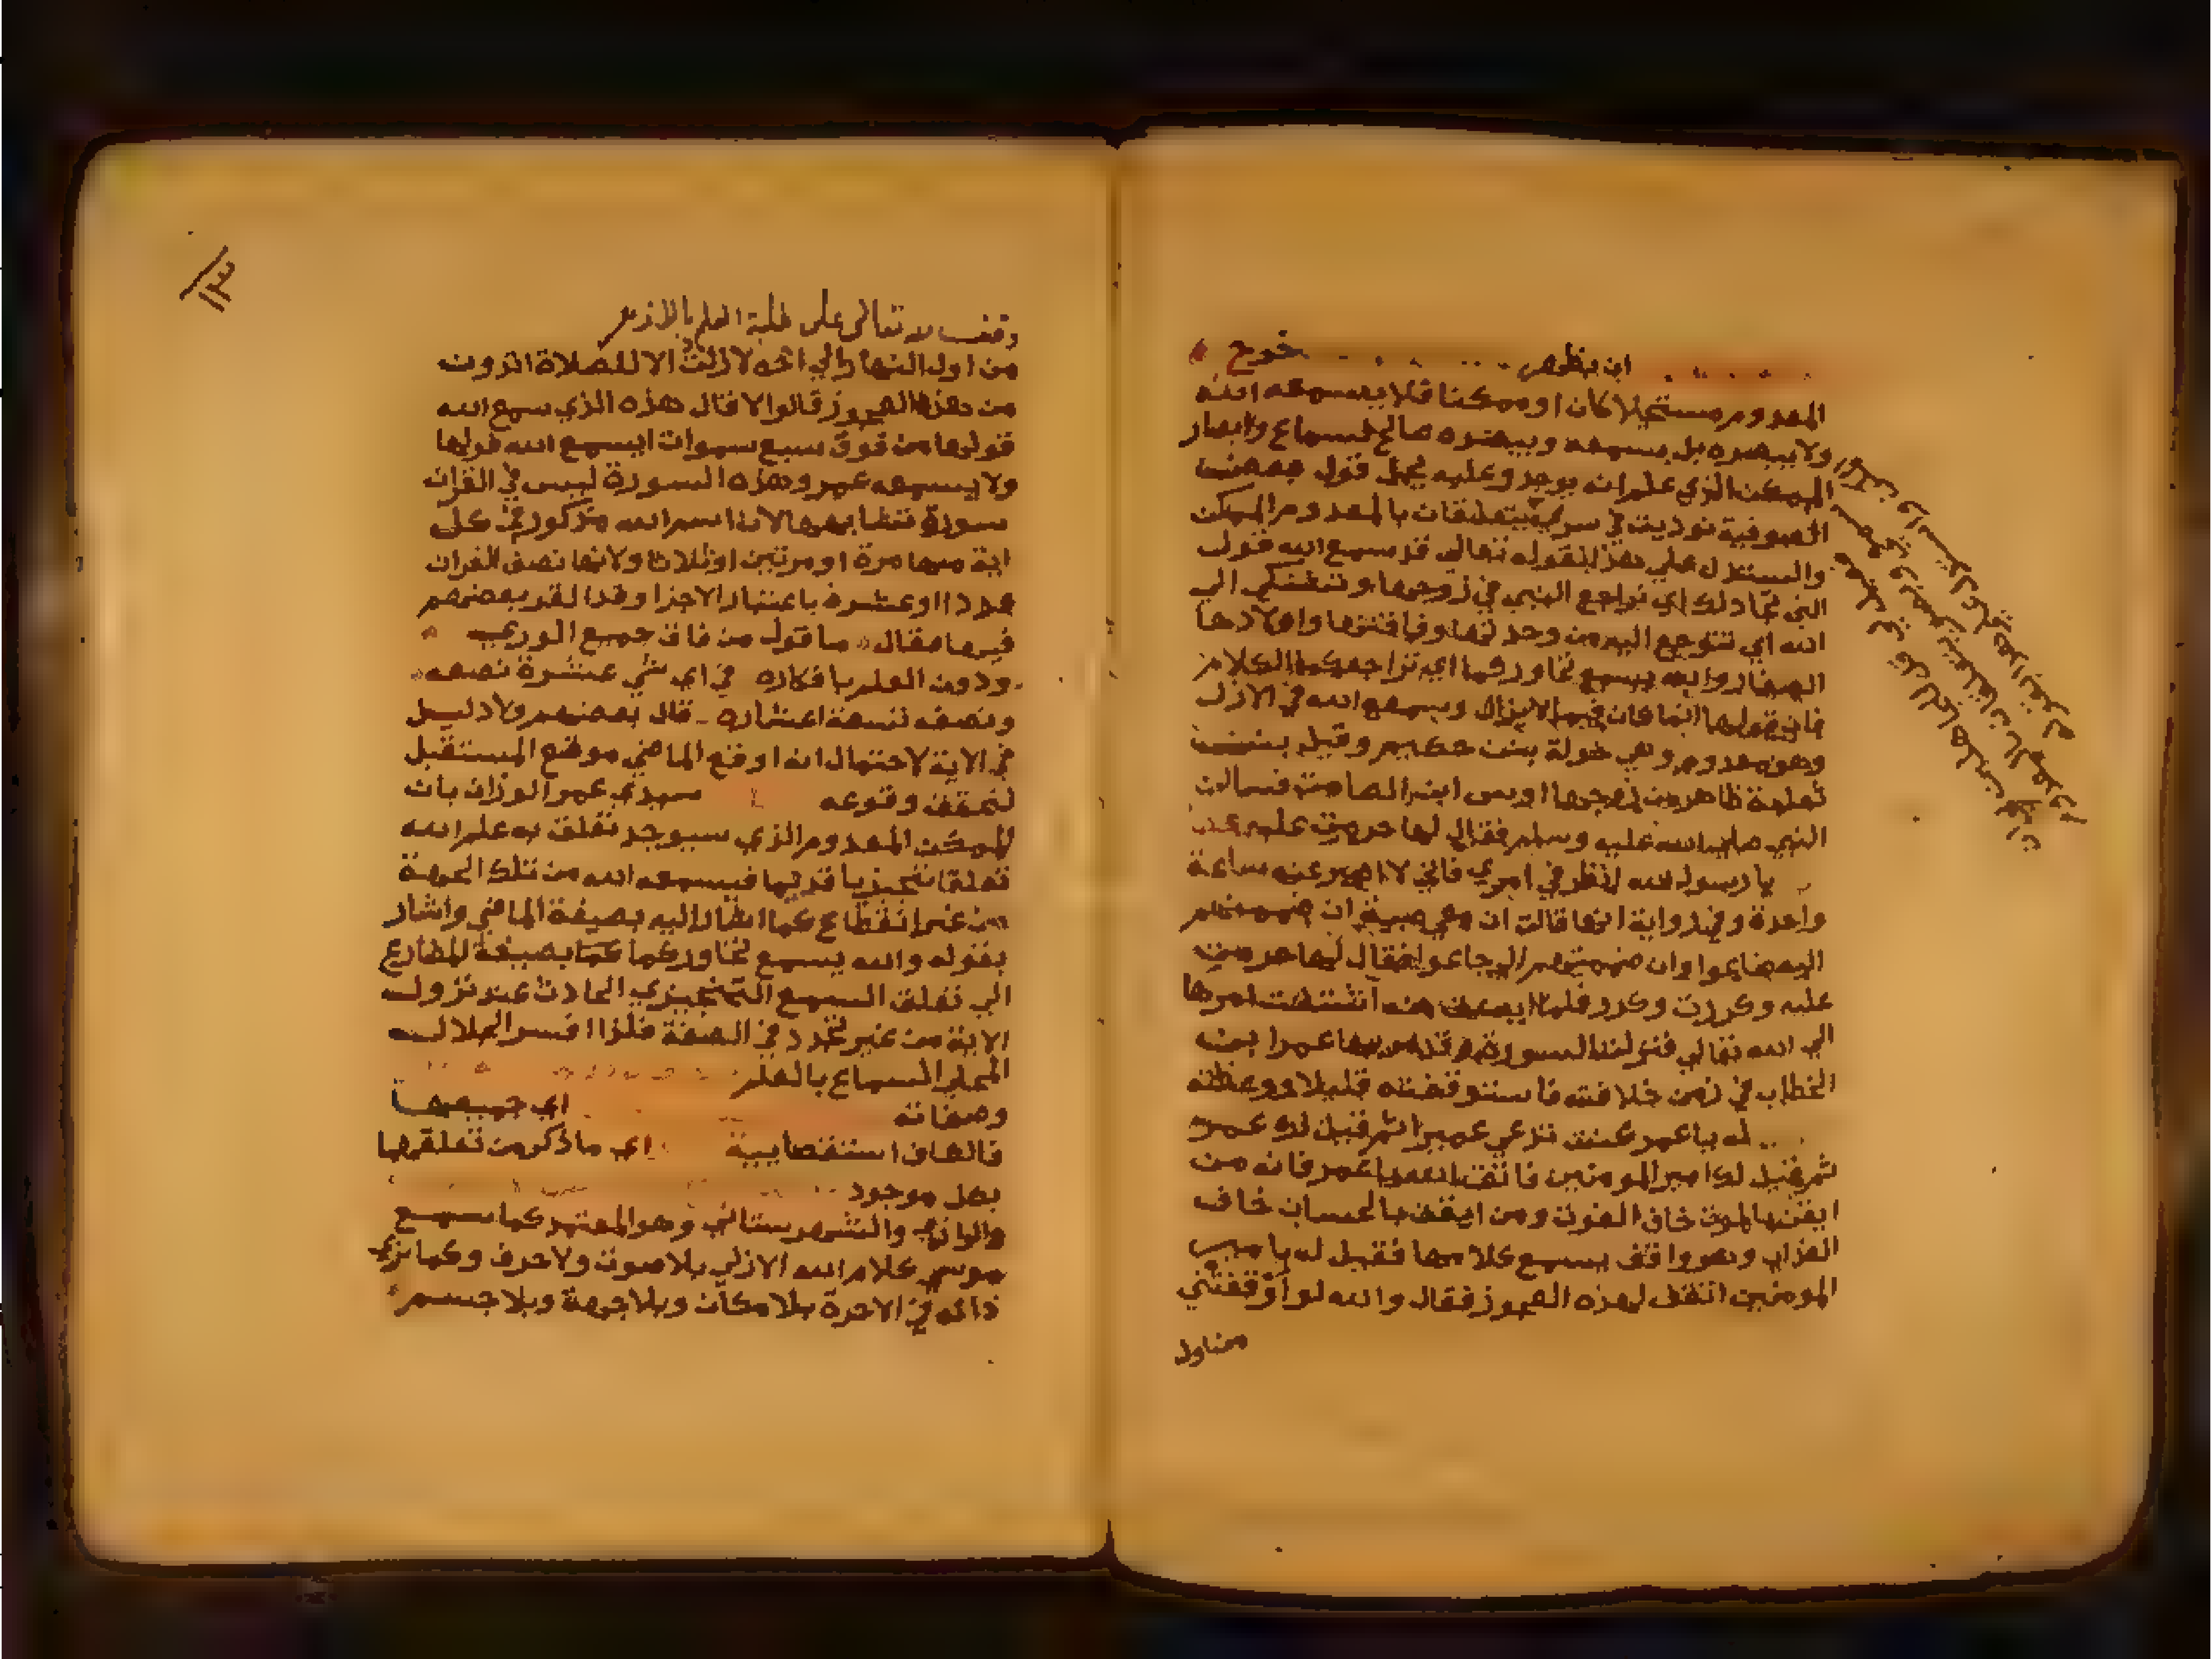 ابن يظهر خرج
المعدوم مستحيلا كان او ممكنا فلا يسمعه الله
ولا يبصره بل يسمعه ويبصره صالح لسماع وابصار
الممكن الذي علم انه يوجد وعليه يحمل قول بعض
الصوفية نوديت في سري يتعلقان بالمعدوم الممكن
والستدل علي هذا بقوله تعالي قد سمع الله قول
التي تجادلك اي تراجع النبي في زوجها وتشتكي الي
الله اي تتوجع اليه من وحدتها وفاقتها واولادها
الصغار والله يسمع تحاوركما اي تراجعكما الكلام
فان قولها انما كان فيما لا يزال وسمع الله في الازل
وهو معدوم وهي خولة بنت حكيم وقيل بنت
ثعلبة ظاهر منها زوجها اوس ابن الصامت فسالت
النبي صلي الله عليه وسلم فقال لها حرمت عليه
يا رسول الله انظر في امري فاني لا اصبر عنه ساعة
واحدة وفي رواية انها قالت ان معي صبية ان ضممتهم
اليه ضاعوا وان ضممتهم الي جاعوا فقال لها حرمت
عليه وكررت وكرر فلما ايست منه اشتكت امرها
الي الله تعالي فنزلت السورة وقد مر بها عمر ابن
الخطاب في زمن خلافته فاستوقفته قليلا ووعظته
له يا عمر كنت تدعي عميرا ثم قيل لك عمر
ثم قيل لك امير المومنين فاتق الله يا عمر فانه من
ايقن بالموت خاف الفوت ومن ايقن بالحساب خاف
العذاب وهو واقف يسمع كلامها فقيل له يا امير
المومنين اتقف لهذه العجوز فقال والله لو اوقفتني
من اول
وقف لله تعالى على طلبة العلم بالازهر
من اول النهار الي اخره لا زلت الا للصلاة اتدرون
من هذه العجوز قالوا لا قال هذه الذي سمع الله
قولها من فوق سبع سموات ايسمع الله قولها
ولا يسمعه عمر وهذه السورة ليس في القران
سورة تشابهها لان اسم الله مذكور في كل
اية منها مرة او مرتين او ثلاثا ولانها نصف القران
عددا وعشره باعتبار الاجزا وقد الغز بعضهم
فيها فقال ما قول من فاق جميع الوري
ودون العلم بافكاره في اي شي عشره نصفه
ونصفه تسعة اعشاره قال بعضهم ولا دليل
في الاية لاحتمال انه اوقع الماضي موقع المستقبل
لتحقق وقوعه سيدي عمر الوزان بان
الممكن المعدوم الذي سيوجد تعلق به علم الله
تعلقا تنجيزيا قديما فيسمعه الله من تلك الجهة
من غير انقطاع كما اشار اليه بصيغة الماضي واشار
بقوله والله يسمع تحاوركما بصيغة المضارع
الي تعلق السمع التنجيزي الحادث عند نزول
الاية من غير تجدد في الصفة فلذا فسر الجلال
المحلي السماع بالعلم
وصفاته اي جميعها
فالهان استقصايية اي ما ذكر من تعلقها
بكل موجود
والرازي والشهرستاني وهو المعتمد كما سمع
موسي كلام الله الازلي بلا صوت ولا حرف وكما نري
ذاته في الاخرة بلا مكان وبلا جهة وبلا جسم